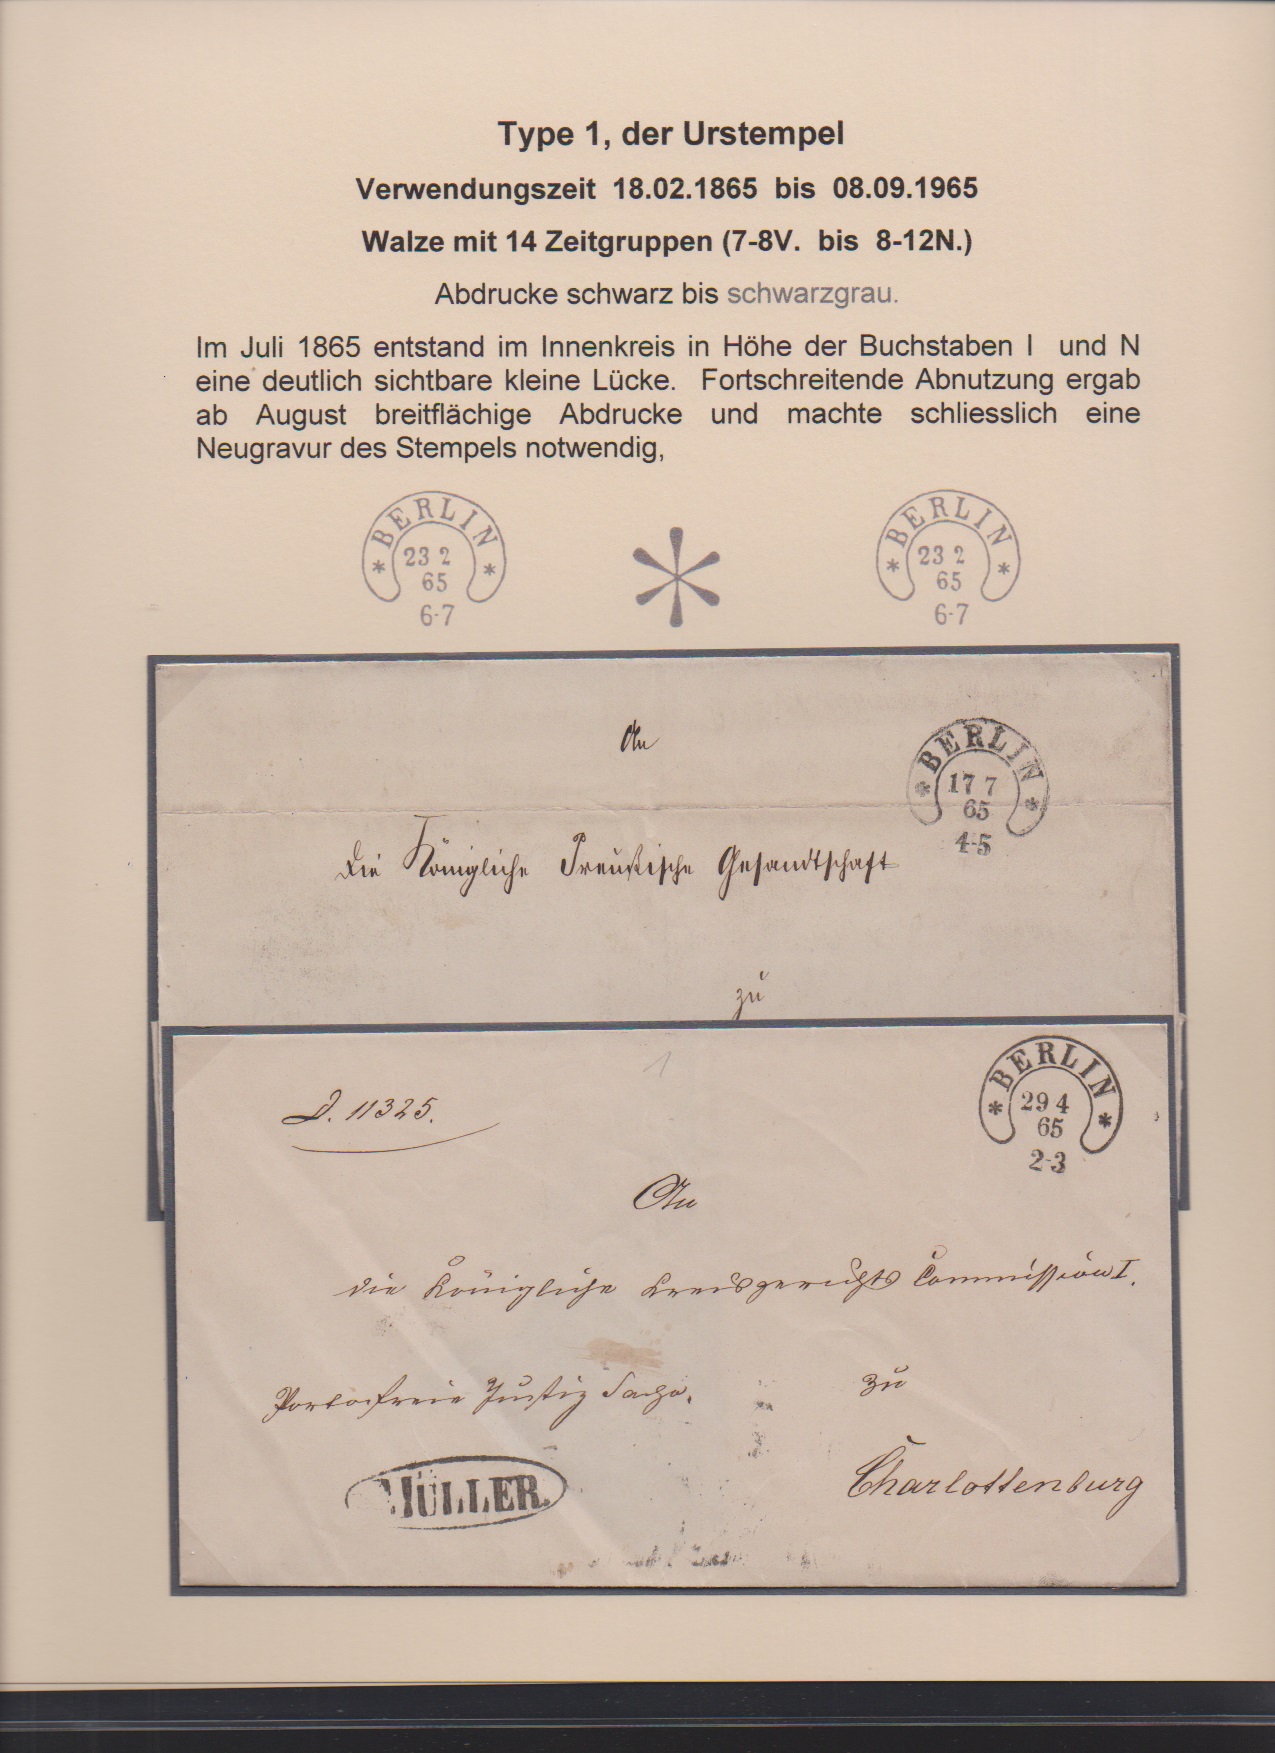 Type 1, der Urstempel
Verwendungszeit 18.02.1865 bis 08.09.1965
Walze mit 14 Zeitgruppen (7-8V. bis 8-12N.)
Abdrucke schwarz bis schwarzgrau.
Im Juli 1865 entstand im Innenkreis in Höhe der Buchstaben I und N
eine deutlich sichtbare kleine Lücke. Fortschreitende Abnutzung ergab
ab August breitflächige Abdrucke und machte schliesslich eine
Neugravur des Stempels notwendig,
* BERLIN *
23 2
65
6-7
* BERLIN *
23 2
65
6-7
An
* BERLIN *
17 7
65
4-5
die Königliche Preußische Gesandtschaft
zu
1
* BERLIN *
29 4
65
2-3
J. 11325.
An
die Königliche Kreisgerichts Commission I.
Portofreie Justiz Sache.
zu
MÜLLER.
Charlottenburg